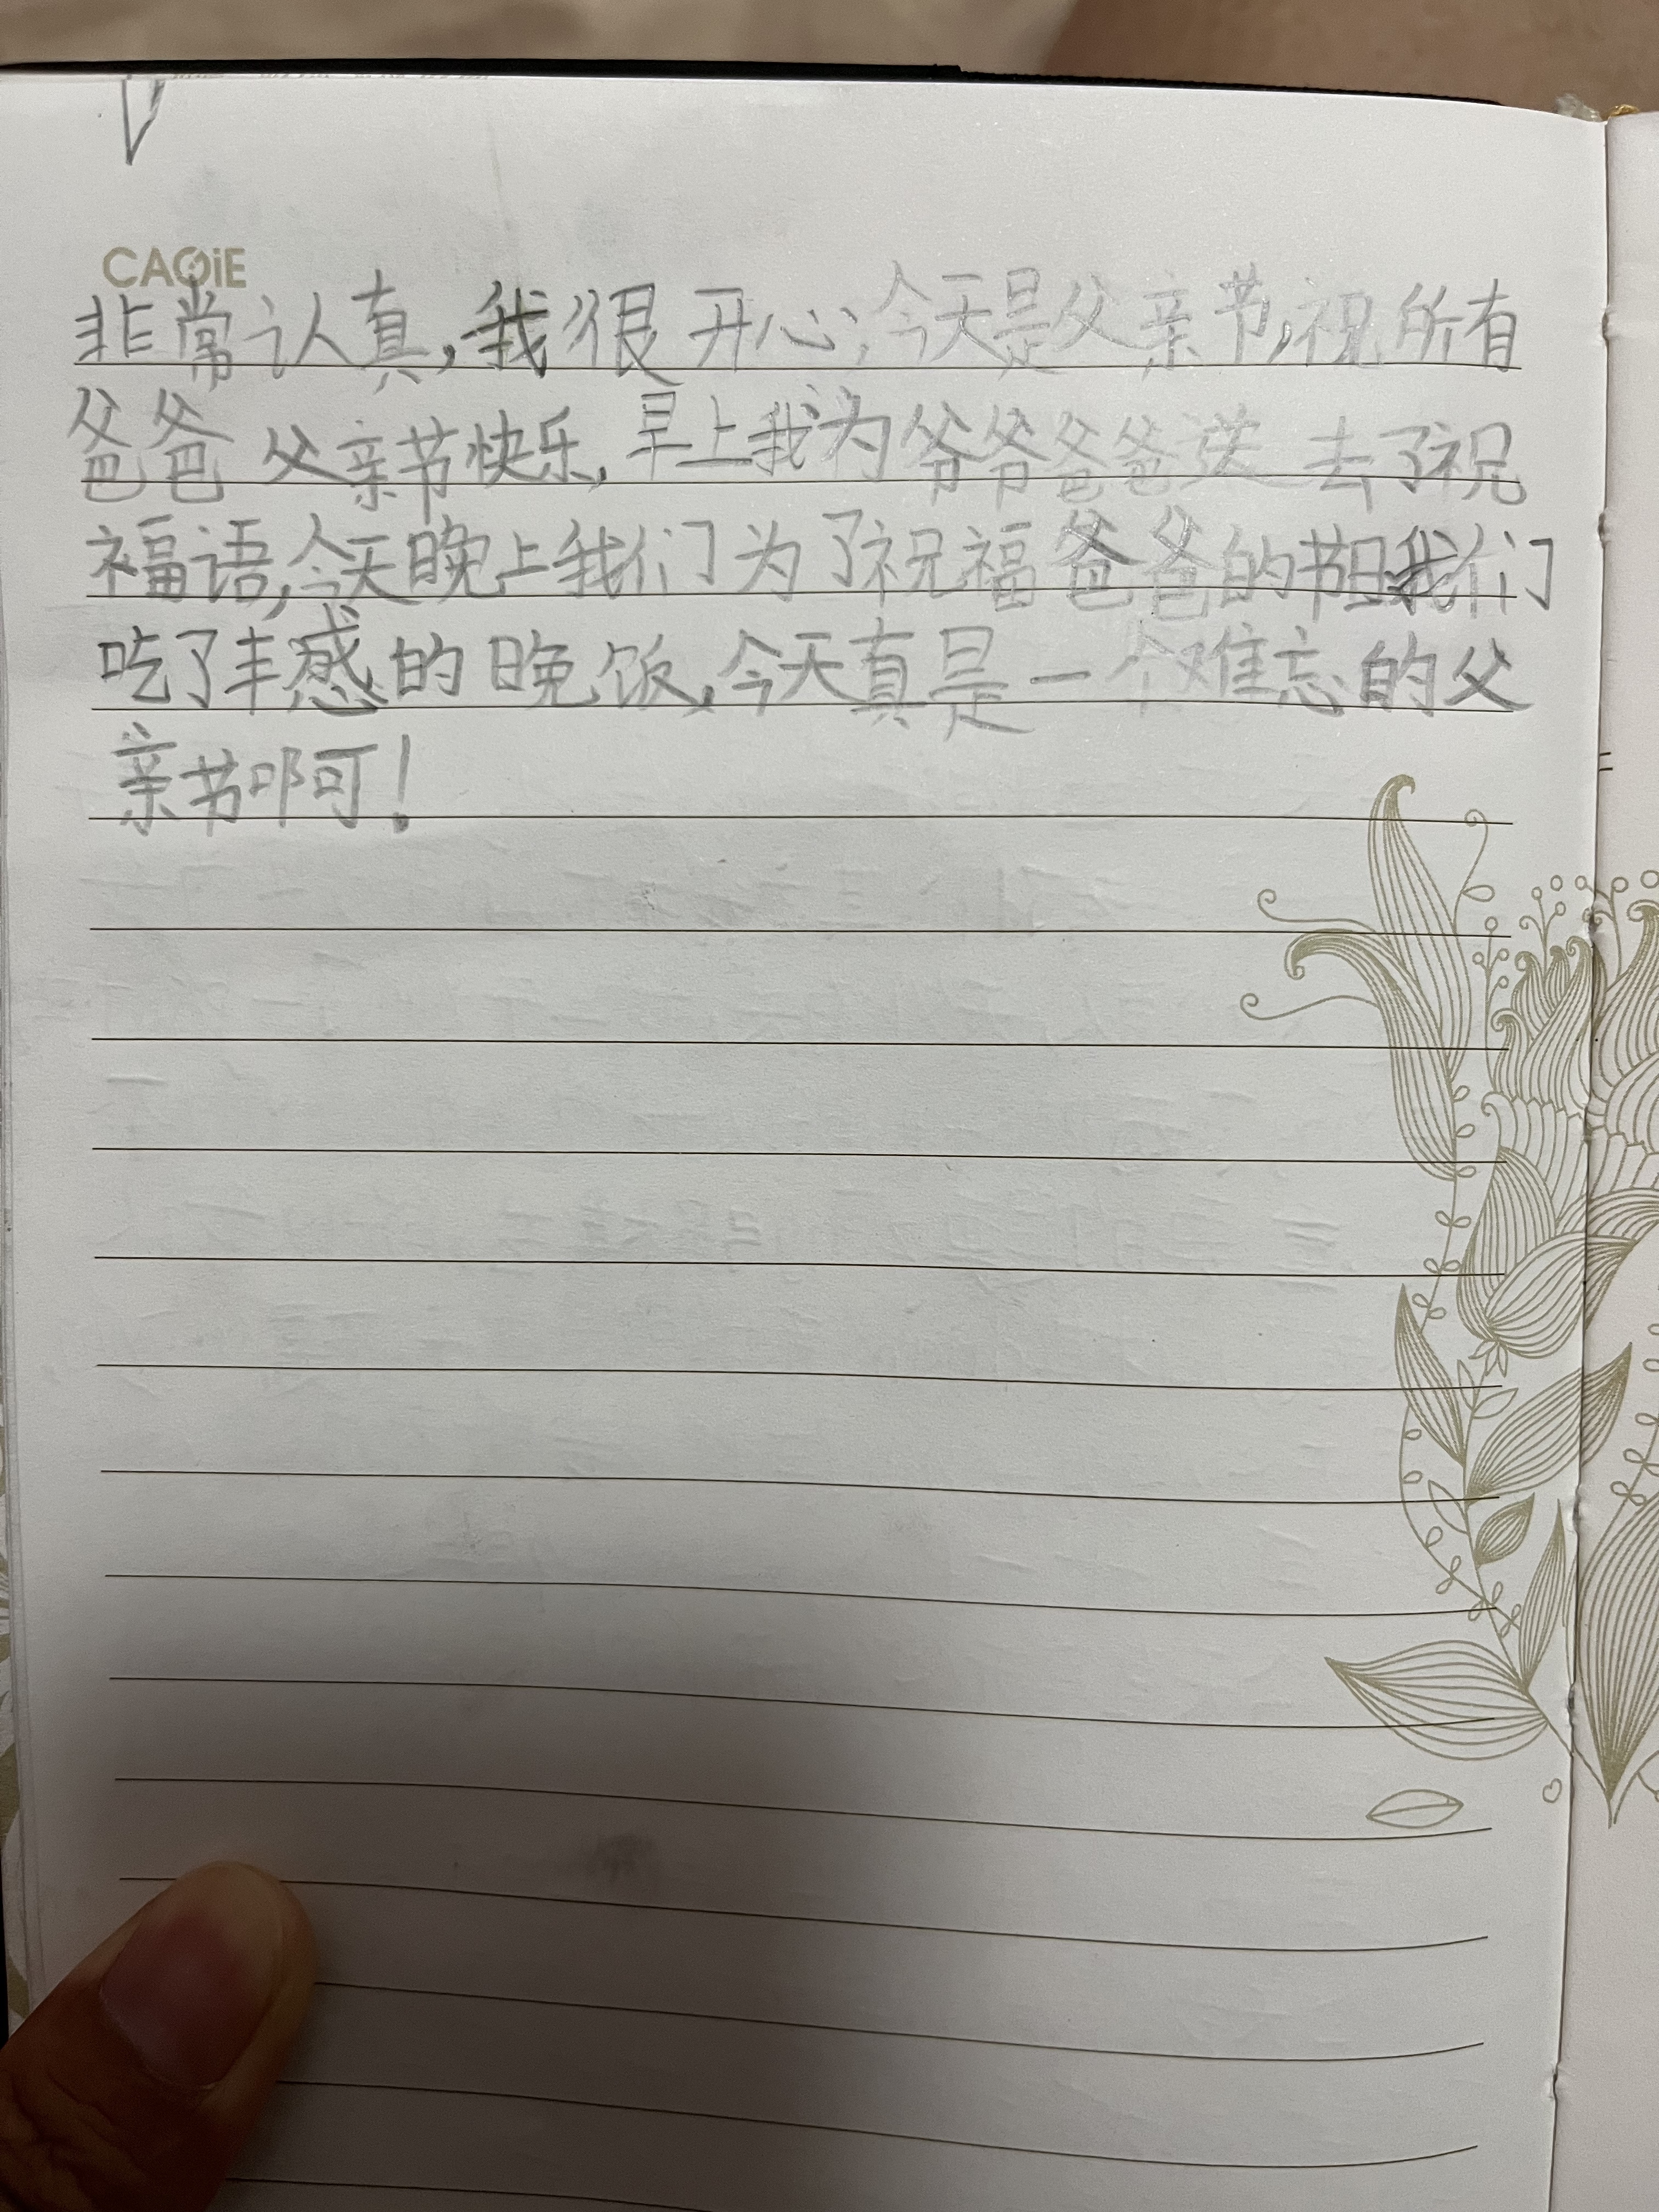 CAGiE
非常认真,我很开心;今天是父亲节,祝所有
爸爸父亲节快乐,早上我为爷爷爸爸送去了祝
福语,今天晚上我们为了祝福爸爸的节日我们
吃了丰感的晚饭,今天真是一个难忘的父
亲节啊!